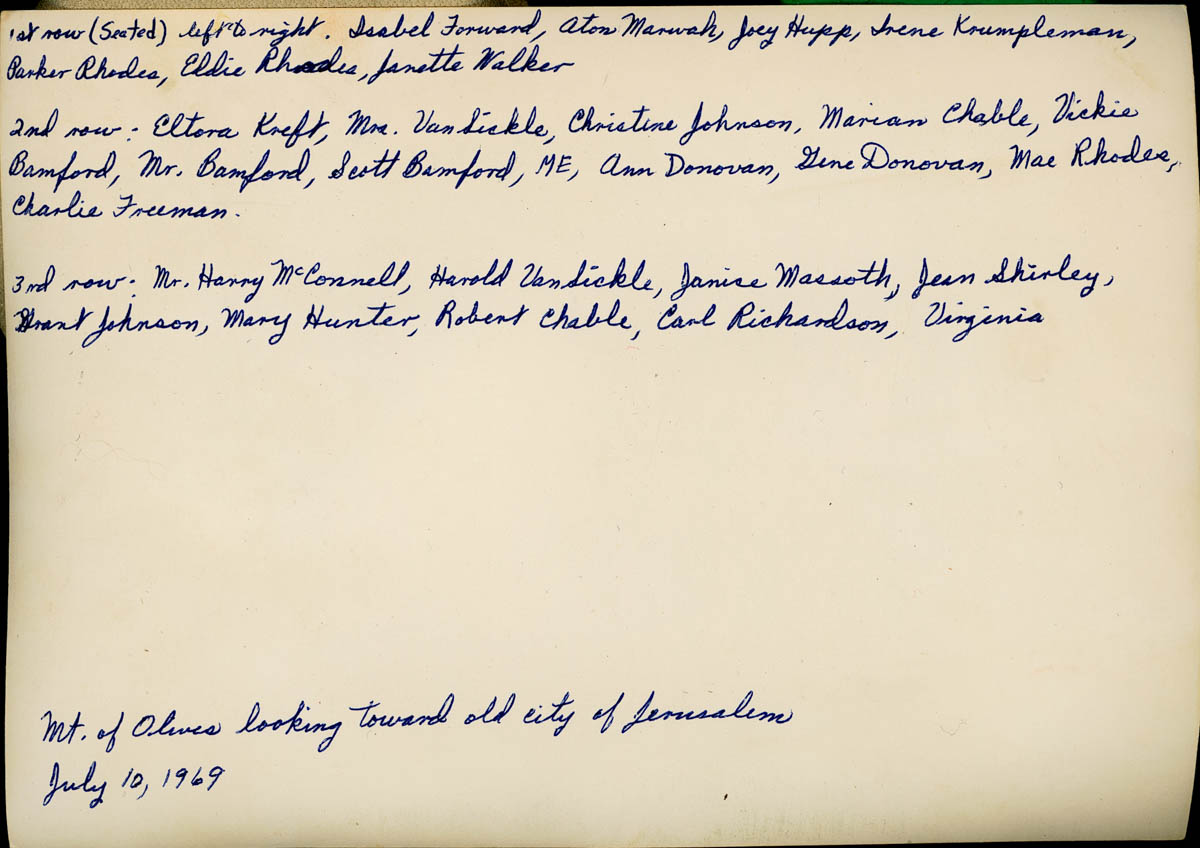 1st row (Seated) left to right. Isabel Forward, Aton Marwah, Joey Hupp, Irene Krumpleman,
Parker Rhodes, Eldie Rhodes, Janette Walker
2nd row: Eltora Kreft, Mrs. VanSickle, Christine Johnson, Marian Chable, Vickie
Bamford, Mr. Bamford, Scott Bamford, ME, Ann Donovan, Gene Donovan, Mae Rhodes,
Charlie Freeman.
3rd row: Mr. Harry McConnell, Harold VanSickle, Janise Massoth, Jean Shirley,
Grant Johnson, Mary Hunter, Robert Chable, Carl Richardson, Virginia
Mt. of Olives looking toward old city of Jerusalem
July 10, 1969